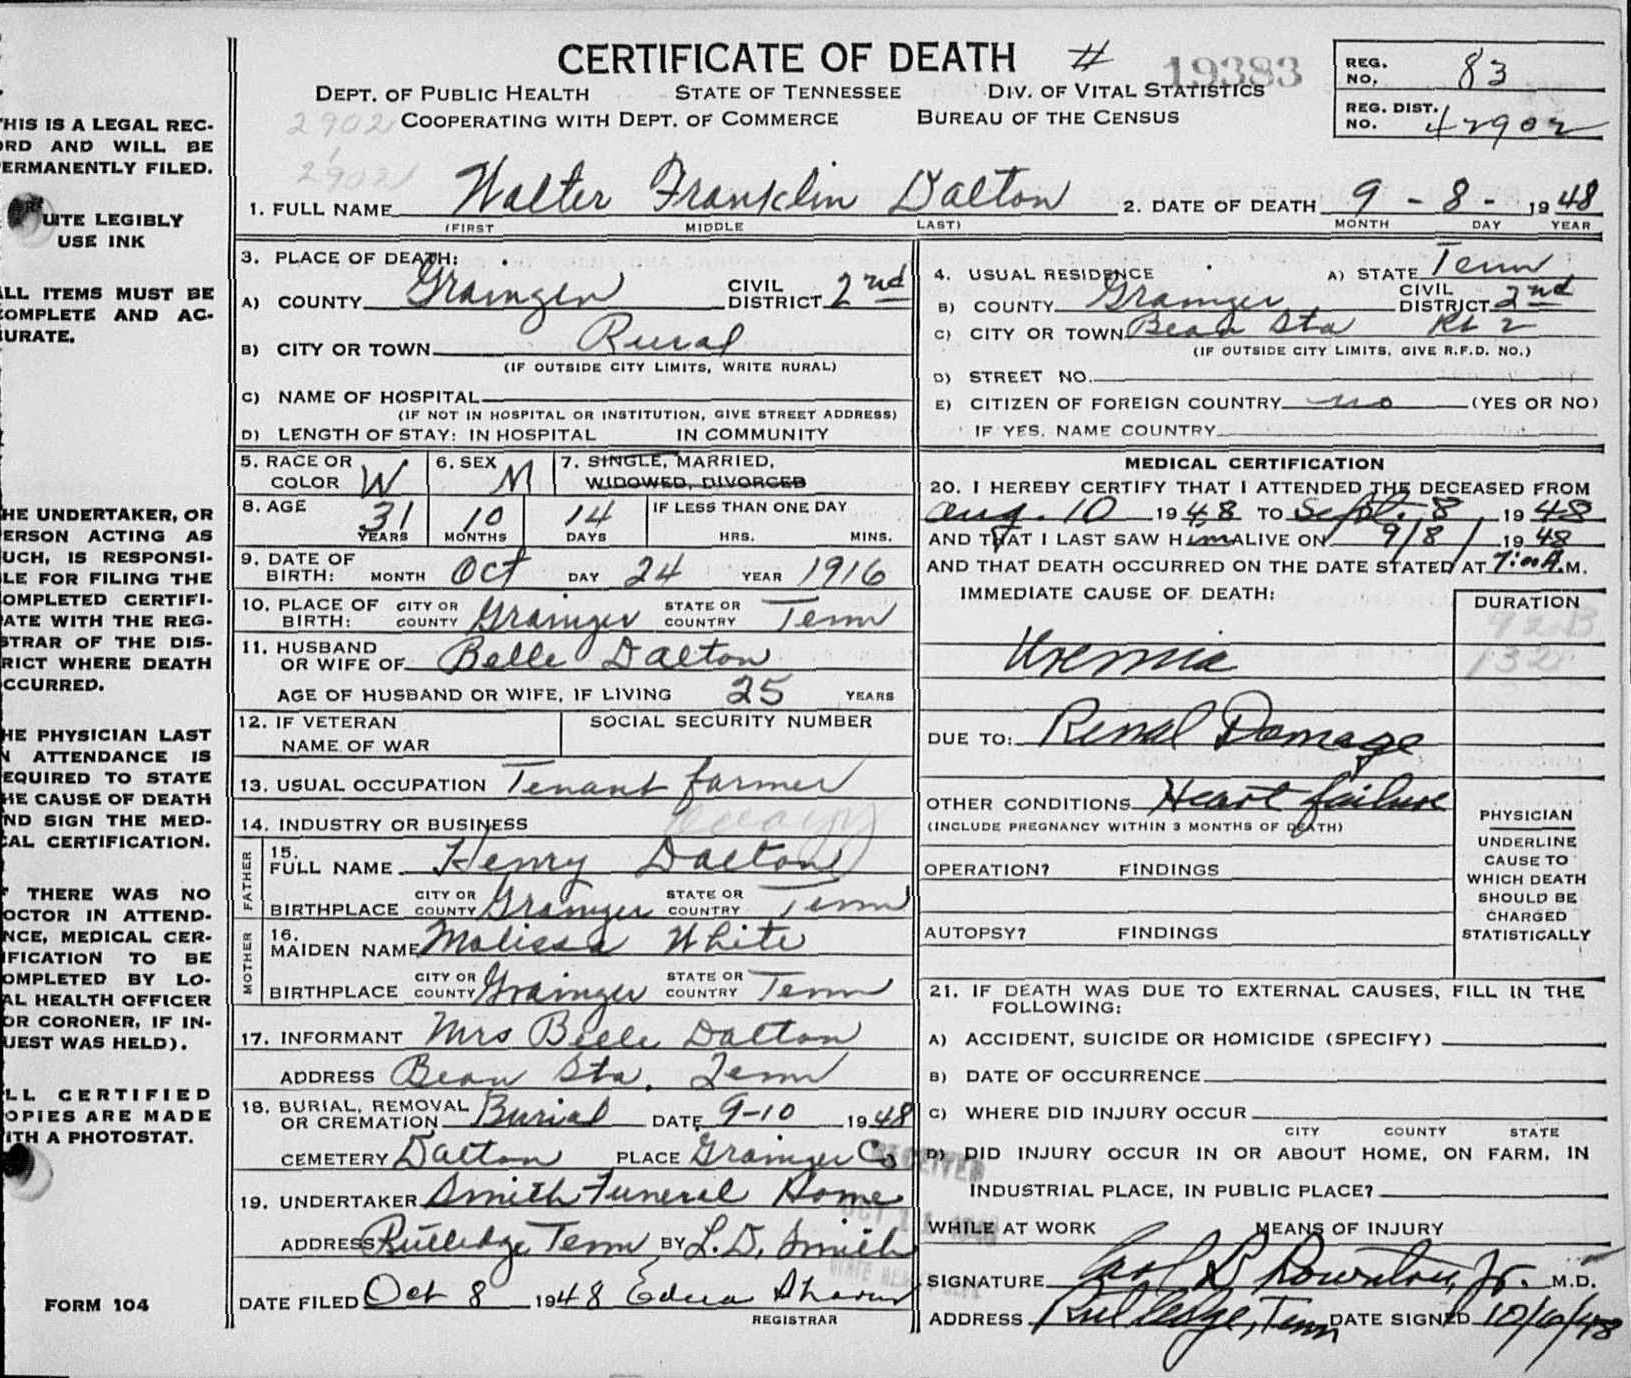 CERTIFICATE OF DEATH # 19383
DEPT. OF PUBLIC HEALTH STATE OF TENNESSEE DIV. OF VITAL STATISTICS
2902 COOPERATING WITH DEPT. OF COMMERCE BUREAU OF THE CENSUS
REG. NO. 83
REG. DIST. NO. 42902
2902
1. FULL NAME Walter Franklin Dalton 2. DATE OF DEATH 9 - 8 - 1948
(FIRST MIDDLE LAST) MONTH DAY YEAR
3. PLACE OF DEATH:
A) COUNTY Grainger CIVIL DISTRICT 2nd
B) CITY OR TOWN Rural
(IF OUTSIDE CITY LIMITS, WRITE RURAL)
C) NAME OF HOSPITAL
(IF NOT IN HOSPITAL OR INSTITUTION, GIVE STREET ADDRESS)
D) LENGTH OF STAY: IN HOSPITAL IN COMMUNITY
4. USUAL RESIDENCE A) STATE Tenn
B) COUNTY Grainger CIVIL DISTRICT 2nd
C) CITY OR TOWN Bean Sta Rt 2
(IF OUTSIDE CITY LIMITS, GIVE R.F.D. NO.)
D) STREET NO.
E) CITIZEN OF FOREIGN COUNTRY no (YES OR NO)
IF YES, NAME COUNTRY
5. RACE OR COLOR W 6. SEX M 7. SINGLE, MARRIED, WIDOWED, DIVORCED
8. AGE 31 YEARS 10 MONTHS 14 DAYS IF LESS THAN ONE DAY HRS. MINS.
9. DATE OF BIRTH: MONTH Oct DAY 24 YEAR 1916
10. PLACE OF BIRTH: CITY OR COUNTY Grainger STATE OR COUNTRY Tenn
11. HUSBAND OR WIFE OF Belle Dalton
AGE OF HUSBAND OR WIFE, IF LIVING 25 YEARS
12. IF VETERAN NAME OF WAR SOCIAL SECURITY NUMBER
13. USUAL OCCUPATION Tenant farmer
14. INDUSTRY OR BUSINESS
FATHER
15. FULL NAME Henry Dalton
BIRTHPLACE CITY OR COUNTY Grainger STATE OR COUNTRY Tenn
MOTHER
16. MAIDEN NAME Malissa White
BIRTHPLACE CITY OR COUNTY Grainger STATE OR COUNTRY Tenn
17. INFORMANT Mrs Belle Dalton
ADDRESS Bean Sta. Tenn
18. BURIAL, REMOVAL OR CREMATION Burial DATE 9-10 1948
CEMETERY Dalton PLACE Grainger Co
19. UNDERTAKER Smith Funeral Home
ADDRESS Rutledge Tenn BY L.D. Smith
DATE FILED Oct 8 1948 Edna
REGISTRAR
RECEIVED
MEDICAL CERTIFICATION
20. I HEREBY CERTIFY THAT I ATTENDED THE DECEASED FROM
Aug. 10 1948 TO Sept. 8, 1948
AND THAT I LAST SAW Him ALIVE ON 9/8/ 1948
AND THAT DEATH OCCURRED ON THE DATE STATED AT 7:00 A.M.
IMMEDIATE CAUSE OF DEATH: DURATION
92B
132
Uremia
DUE TO: Renal Damage
OTHER CONDITIONS Heart failure
(INCLUDE PREGNANCY WITHIN 3 MONTHS OF DEATH)
OPERATION? FINDINGS
AUTOPSY? FINDINGS
PHYSICIAN
UNDERLINE
CAUSE TO
WHICH DEATH
SHOULD BE
CHARGED
STATISTICALLY
21. IF DEATH WAS DUE TO EXTERNAL CAUSES, FILL IN THE FOLLOWING:
A) ACCIDENT, SUICIDE OR HOMICIDE (SPECIFY)
B) DATE OF OCCURRENCE
C) WHERE DID INJURY OCCUR
CITY COUNTY STATE
D) DID INJURY OCCUR IN OR ABOUT HOME, ON FARM, IN
INDUSTRIAL PLACE, IN PUBLIC PLACE?
WHILE AT WORK MEANS OF INJURY
SIGNATURE Jr. M.D.
ADDRESS Rutledge, Tenn DATE SIGNED 10/6/48
THIS IS A LEGAL REC-
ORD AND WILL BE
PERMANENTLY FILED.
LEGIBLY
USE INK
ALL ITEMS MUST BE
COMPLETE AND AC-
CURATE.
THE UNDERTAKER, OR
PERSON ACTING AS
SUCH, IS RESPONSI-
BLE FOR FILING THE
COMPLETED CERTIFI-
CATE WITH THE REG-
ISTRAR OF THE DIS-
TRICT WHERE DEATH
OCCURRED.
THE PHYSICIAN LAST
IN ATTENDANCE IS
REQUIRED TO STATE
THE CAUSE OF DEATH
AND SIGN THE MED-
ICAL CERTIFICATION.
IF THERE WAS NO
DOCTOR IN ATTEND-
ANCE, MEDICAL CER-
TIFICATION TO BE
COMPLETED BY LO-
CAL HEALTH OFFICER
OR CORONER, IF IN-
QUEST WAS HELD).
ALL CERTIFIED
COPIES ARE MADE
WITH A PHOTOSTAT.
FORM 104